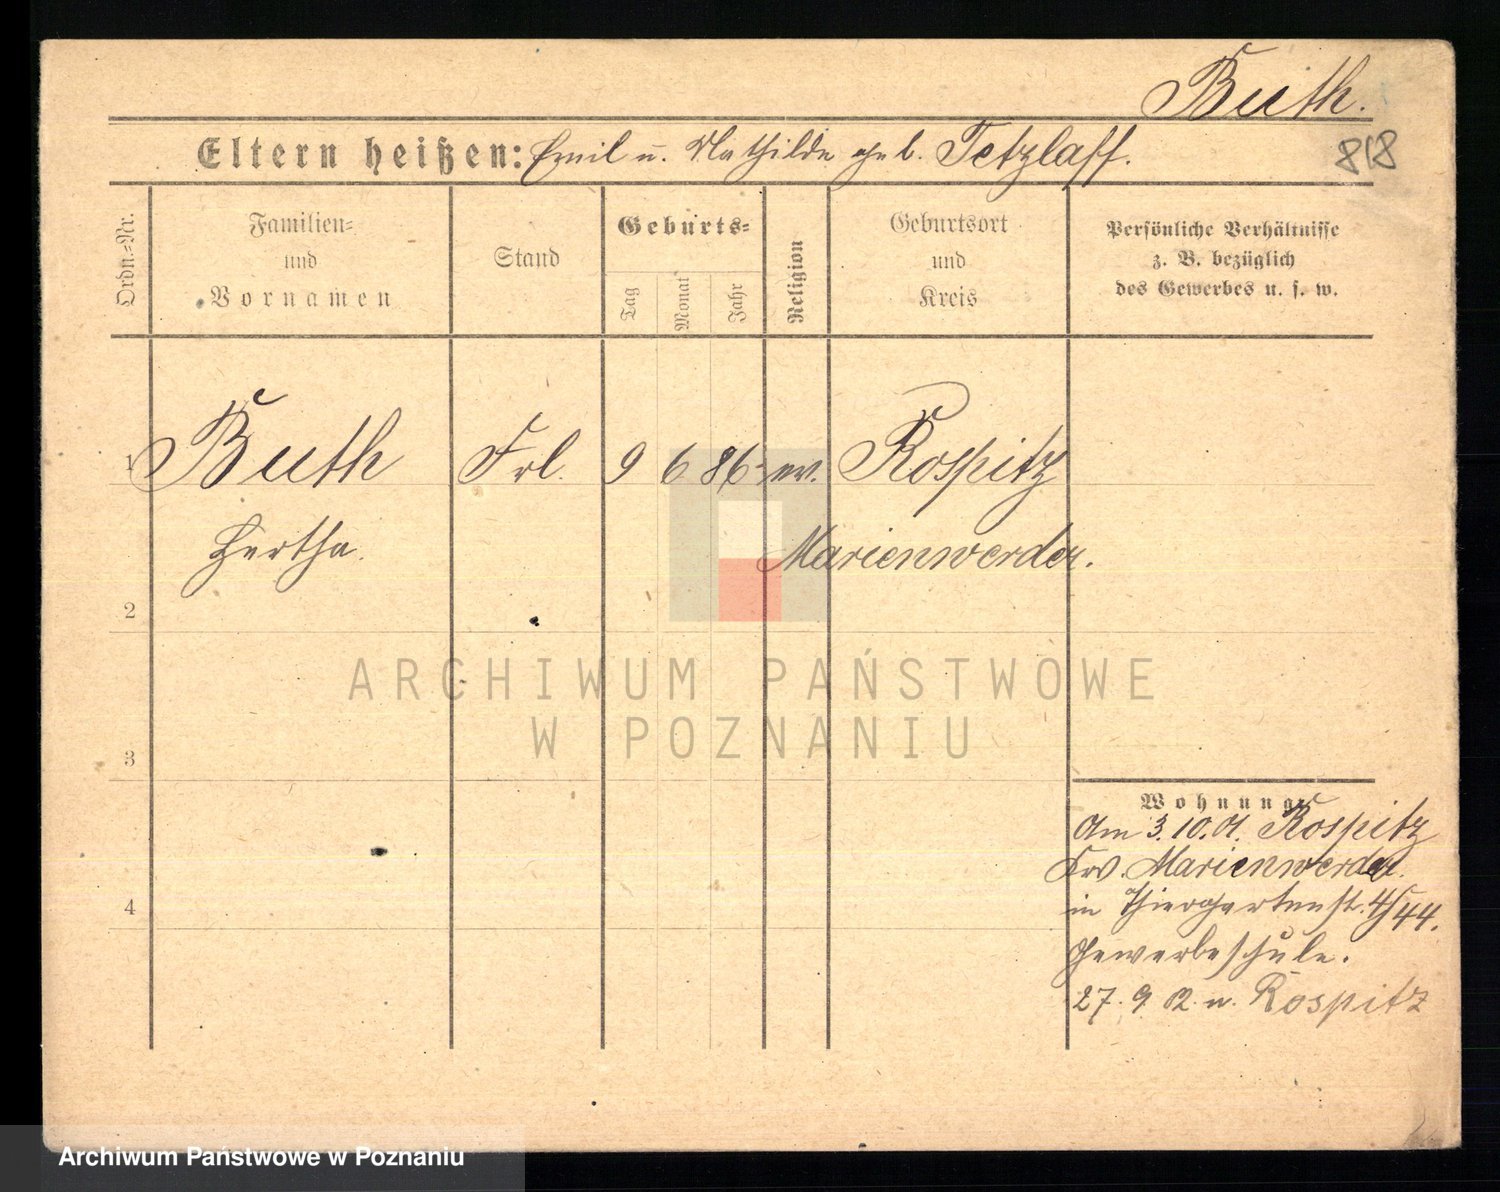 Buth.
Eltern heißen: Emil u. Mathilde geb. Tetzlaff.
818
Ordn.-Nr.
Familien-
und
Vornamen
Stand
Geburts-
Tag
Monat
Jahr
Religion
Geburtsort
und
Kreis
Persönliche Verhältnisse
z. B. bezüglich
des Gewerbes u. s. w.
1 Buth Frl. 9 6 86 ev. Rospitz
Hertha. Marienwerder.
2
3
4
ARCHIWUM PAŃSTWOWE
W POZNANIU
Wohnung
Am 3.10.01. Rospitz
Krs. Marienwerder.
in Thiergartenstr. 4/44.
Gewerbeschule.
27. 9. 02. n. Rospitz
Archiwum Państwowe w Poznaniu